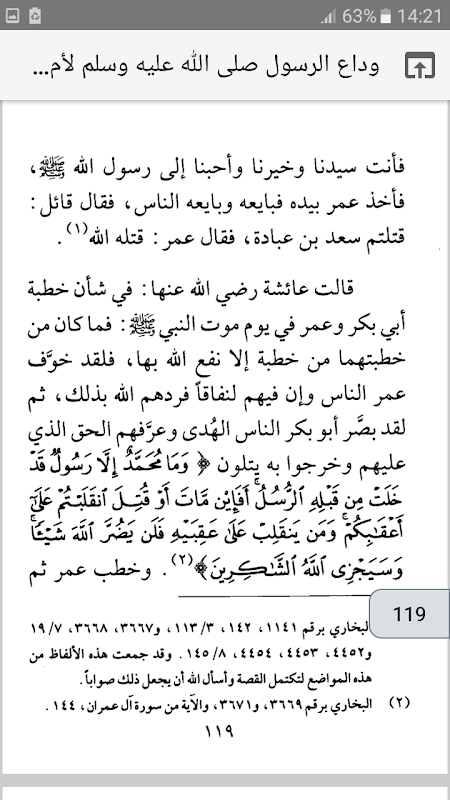 63% 14:21
وداع الرسول صلى الله عليه وسلم لأم...
فأنت سيدنا وخيرنا وأحبنا إلى رسول الله ﷺ،
فأخذ عمر بيده فبايعه وبايعه الناس، فقال قائل:
قتلتم سعد بن عبادة، فقال عمر: قتله الله(١).
قالت عائشة رضي الله عنها: في شأن خطبة
أبي بكر وعمر في يوم موت النبي ﷺ: فما كان من
خطبتهما من خطبة إلا نفع الله بها، فلقد خوَّف
عمر الناس وإن فيهم لنفاقاً فردهم الله بذلك، ثم
لقد بصَّر أبو بكر الناس الهُدى وعرَّفهم الحق الذي
عليهم وخرجوا به يتلون ﴿ وَمَا مُحَمَّدٌ إِلَّا رَسُولٌ قَدْ
خَلَتْ مِن قَبْلِهِ الرُّسُلُ أَفَإِيْن مَّاتَ أَوْ قُتِلَ انقَلَبْتُمْ عَلَىٰ
أَعْقَابِكُمْ وَمَن يَنقَلِبْ عَلَىٰ عَقِبَيْهِ فَلَن يَضُرَّ اللَّهَ شَيْئًا
وَسَيَجْزِى اللَّهُ الشَّاكِرِينَ﴾(٢). وخطب عمر ثم
119
لبخاري برقم ١١٤١، ١٤٢، ٣/ ١١٣، و٣٦٦٧، ٣٦٦٨، ٧/ ١٩
و٤٤٥٢، ٤٤٥٣، ٤٤٥٤، ٨/ ١٤٥. وقد جمعت هذه الألفاظ من
هذه المواضع لتكتمل القصة وأسأل الله أن يجعل ذلك صواباً.
(٢) البخاري برقم ٣٦٦٩، و٣٦٧١، والآية من سورة آل عمران، ١٤٤.
١١٩